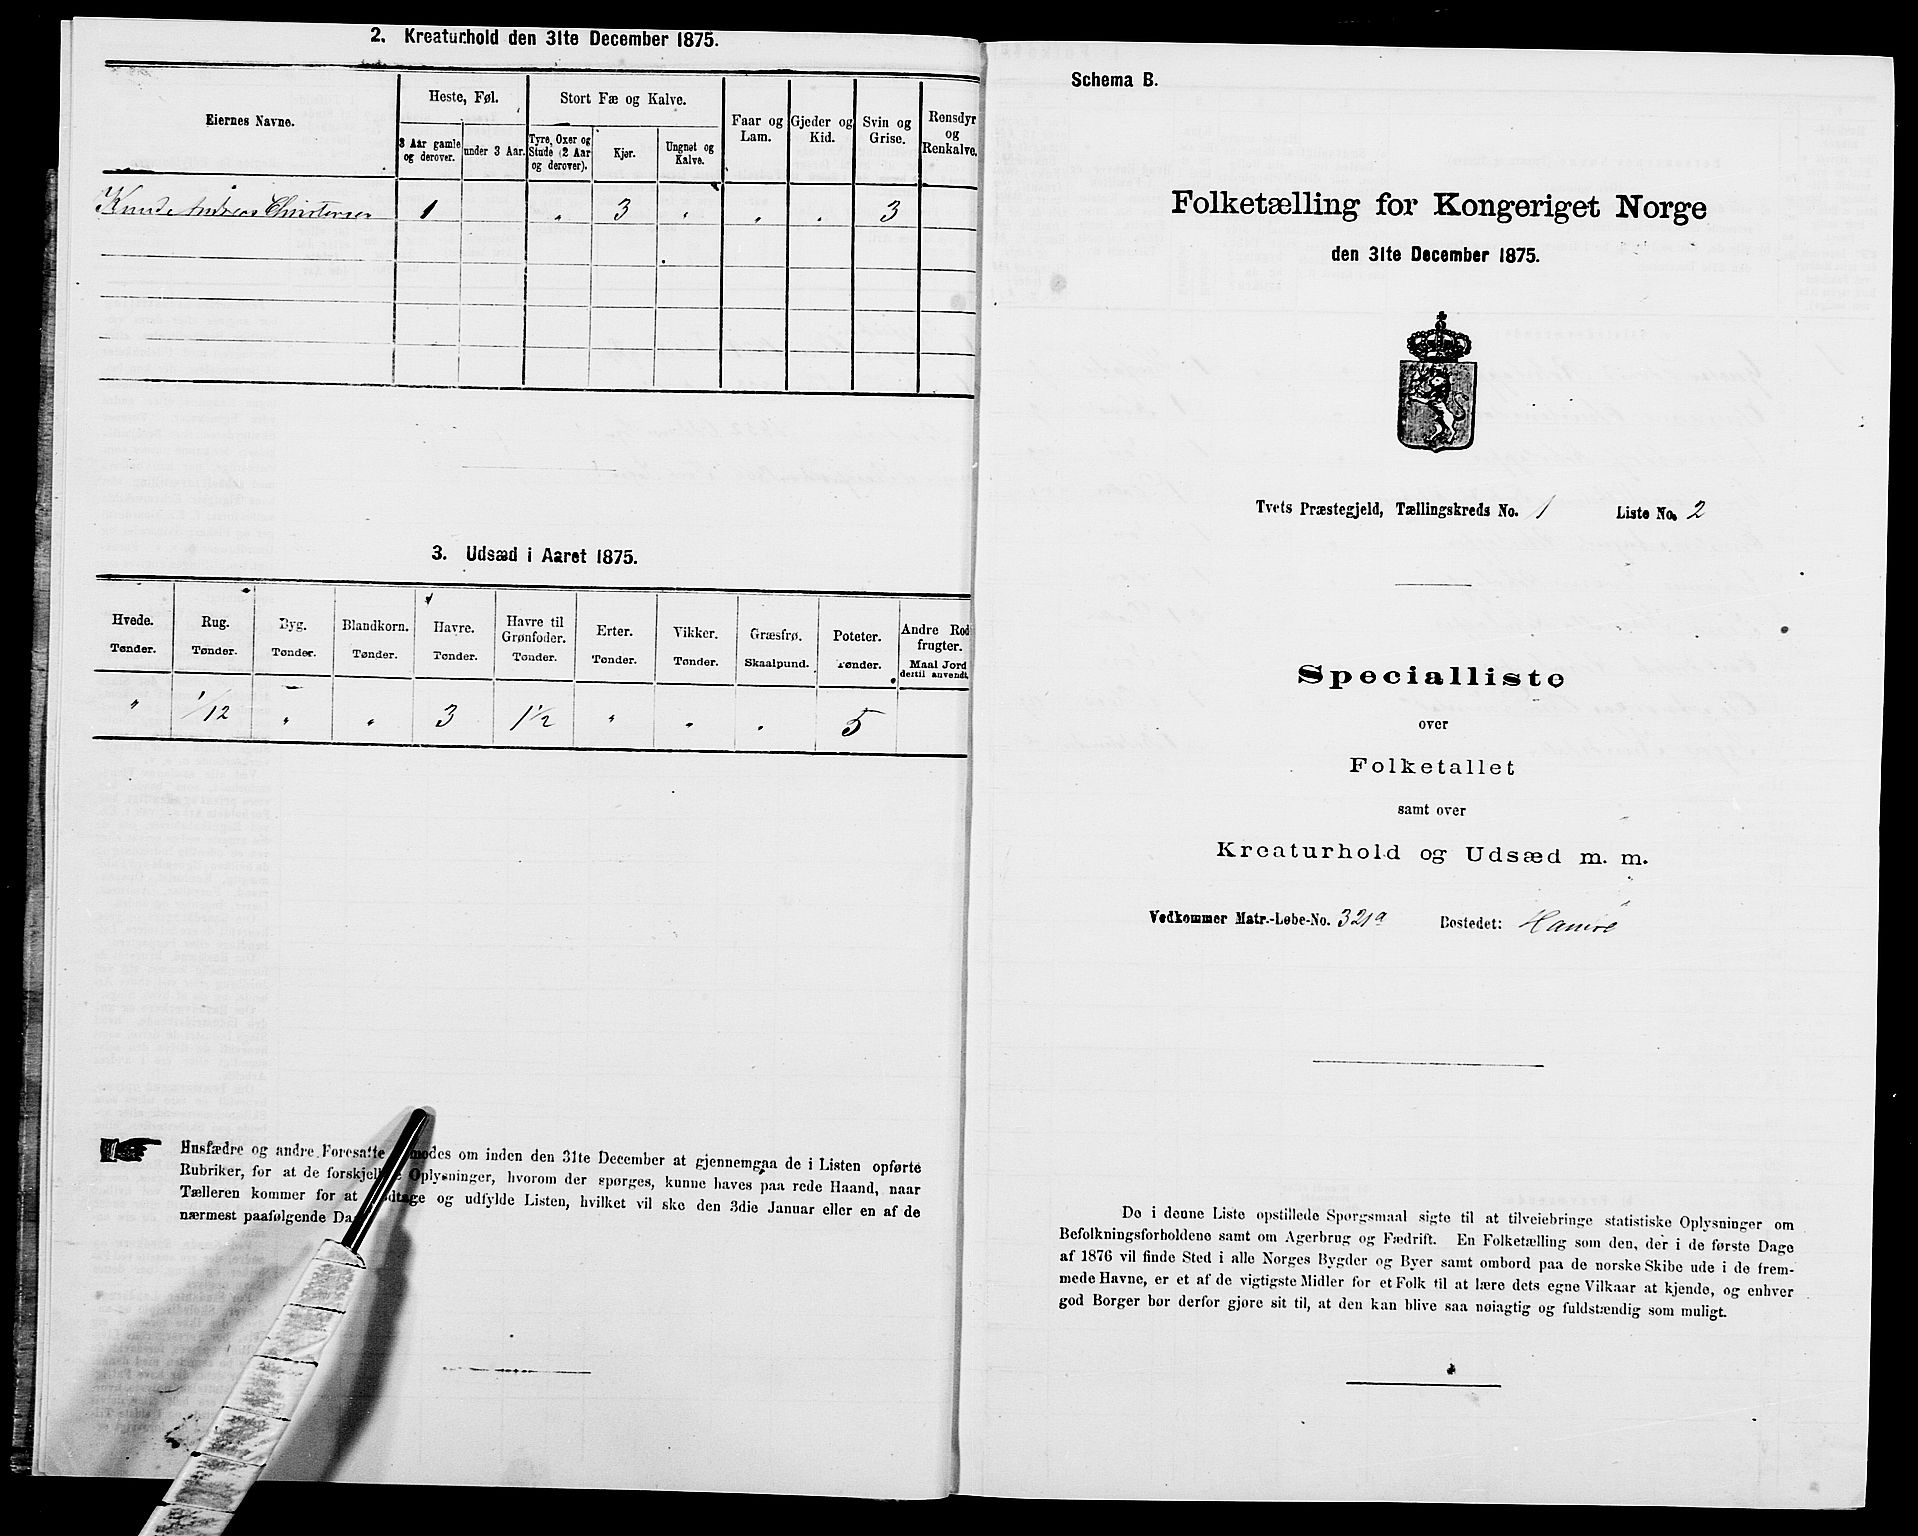 2. Kreaturhold den 31te December 1875.
Eiernes Navne.
Heste, Føl.
3 Aar gamle og derover.
under 3 Aar.
Stort Fæ og Kalve.
Tyre, Oxer og Stude (2 Aar og derover).
Kjør.
Ungnøt og Kalve.
Faar og Lam.
Gjeder og Kid.
Svin og Grise.
Rensdyr og Renkalve.
Knud Andreas Christensen 1 " 3 " " " 3
3. Udsæd i Aaret 1875.
Hvede. Rug. Byg. Blandkorn. Havre. Havre til Grønfoder. Erter. Vikker. Græsfrø. Poteter. Andre Rodfrugter.
Tønder. Tønder. Tønder. Tønder. Tønder. Tønder. Tønder. Tønder. Skaalpund. Tønder. Maal Jord dertil anvendt.
" 1/12 " " 3 1 1/2 " " " 5
Husfædre og andre Foresatte modes om inden den 31te December at gjennemgaa de i Listen opførte
Rubriker, for at de forskjellige Oplysninger, hvorom der spørges, kunne haves paa rede Haand, naar
Tælleren kommer for at dtage og udfylde Listen, hvilket vil ske den 3die Januar eller en af de
nærmest paafølgende Da
Schema B.
Folketælling for Kongeriget Norge
den 31te December 1875.
Tvets Præstegjeld, Tællingskreds No. 1 Liste No. 2
Specialliste
over
Folketallet
samt over
Kreaturhold og Udsæd m. m.
Vedkommer Matr.-Løbe-No. 321a Bostedet: Hamre
De i denne Liste opstillede Spørgsmaal sigte til at tilveiebringe statistiske Oplysninger om
Befolkningsforholdene samt om Agerbrug og Fædrift. En Folketælling som den, der i de første Dage
af 1876 vil finde Sted i alle Norges Bygder og Byer samt ombord paa de norske Skibe ude i de frem-
mede Havne, er et af de vigtigste Midler for et Folk til at lære dets egne Vilkaar at kjende, og enhver
god Borger bør derfor gjøre sit til, at den kan blive saa nøiagtig og fuldstændig som muligt.